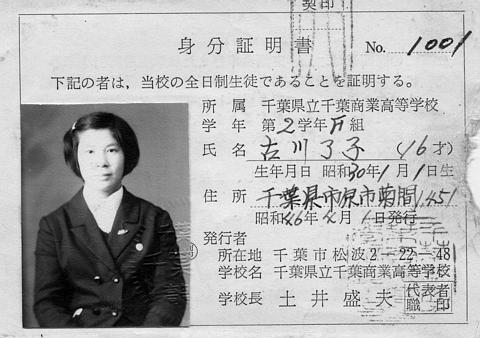 契印
身分証明書 No. 1001
下記の者は，当校の全日制生徒であることを証明する。
所属 千葉県立千葉商業高等学校
学年 第2学年F組
氏名 古川了子 (16才)
生年月日 昭和30年1月1日生
住所 千葉県市原市菊間1451
昭和46年4月1日発行
発行者
所在地 千葉市松波2-22-48
学校名 千葉県立千葉商業高等学校
学校長 土井盛夫 代表者職印